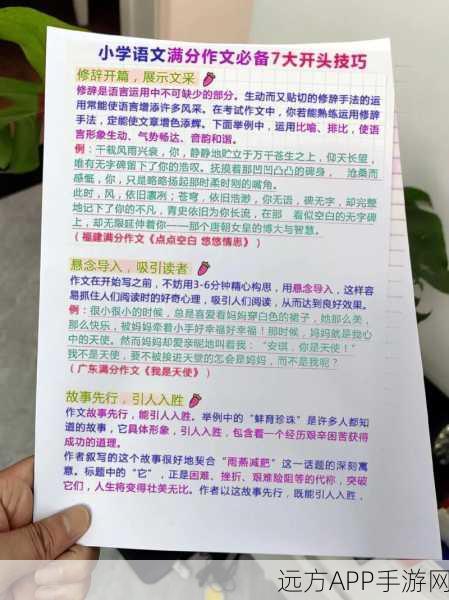 小学语文满分作文必备7大开头技巧
修辞开篇，展示文采
修辞是语言运用中不可缺少的部分。生动而又贴切的修辞手法的运
用常能使语言增添许多风采。在考试作文中，你若能熟练运用修辞
手法，定能使文章增色添辉。下面举例中，运用比喻、排比，使语
言形象生动、气势畅达、音韵和谐。
例：千载风雨兴衰，你，静静地贮立于万千苍生之上，仰天长望，
唯有无字碑留下了你的浩叹。抚摸着那凹凹凸凸的碑身， 沧桑而
感慨，你，只是略略扬起那时柔时刚的嘴角。
此时，风，依旧凛冽；苍穹，依旧浩渺，你无语，碑无字，却完整
地记下了你的不凡，青史依旧为你长流，在那 看似空白的无字碑
上，却无限延伸着你——那个唐朝女皇的博大与智慧。
（福建满分作文《点点空白 悠悠情思》）
悬念导入，吸引读者
作文在开始写之前，不妨用3-6分钟精心构思，用悬念导入，这样容
易抓住人们阅读时的好奇心理，吸引人们阅读，从而达到良好效果。
例：很小很小的时候，总是喜爱看妈妈穿白色的裙子，她那么美，
那么快乐，被妈妈牵着小手好幸福好幸福！那时候，妈妈就是我心
中的天使。然而妈妈却爱亲昵地叫着我："安琪，你是天使！"
我不是天使，要不被接进天堂的怎会是妈妈，而不是我呢？
（广东满分作文《我是天使》）
故事先行，引人入胜
作文故事先行，能引人入胜。举例中的"鲜育珍珠"是许多人都知
道的故事，它具体形象，引人入胜，包含着一个经历艰辛困苦获得
成功的道理。
作者叙写的这个故事很好地契合"雨燕减肥"这一话题的深刻寓
意。标题中的"它"，正是困难、挫折、艰难险阻等的代称，突破
它们，人生将变得壮美无比。作者以这故事先行，既能引人入胜，
远方APP手游网